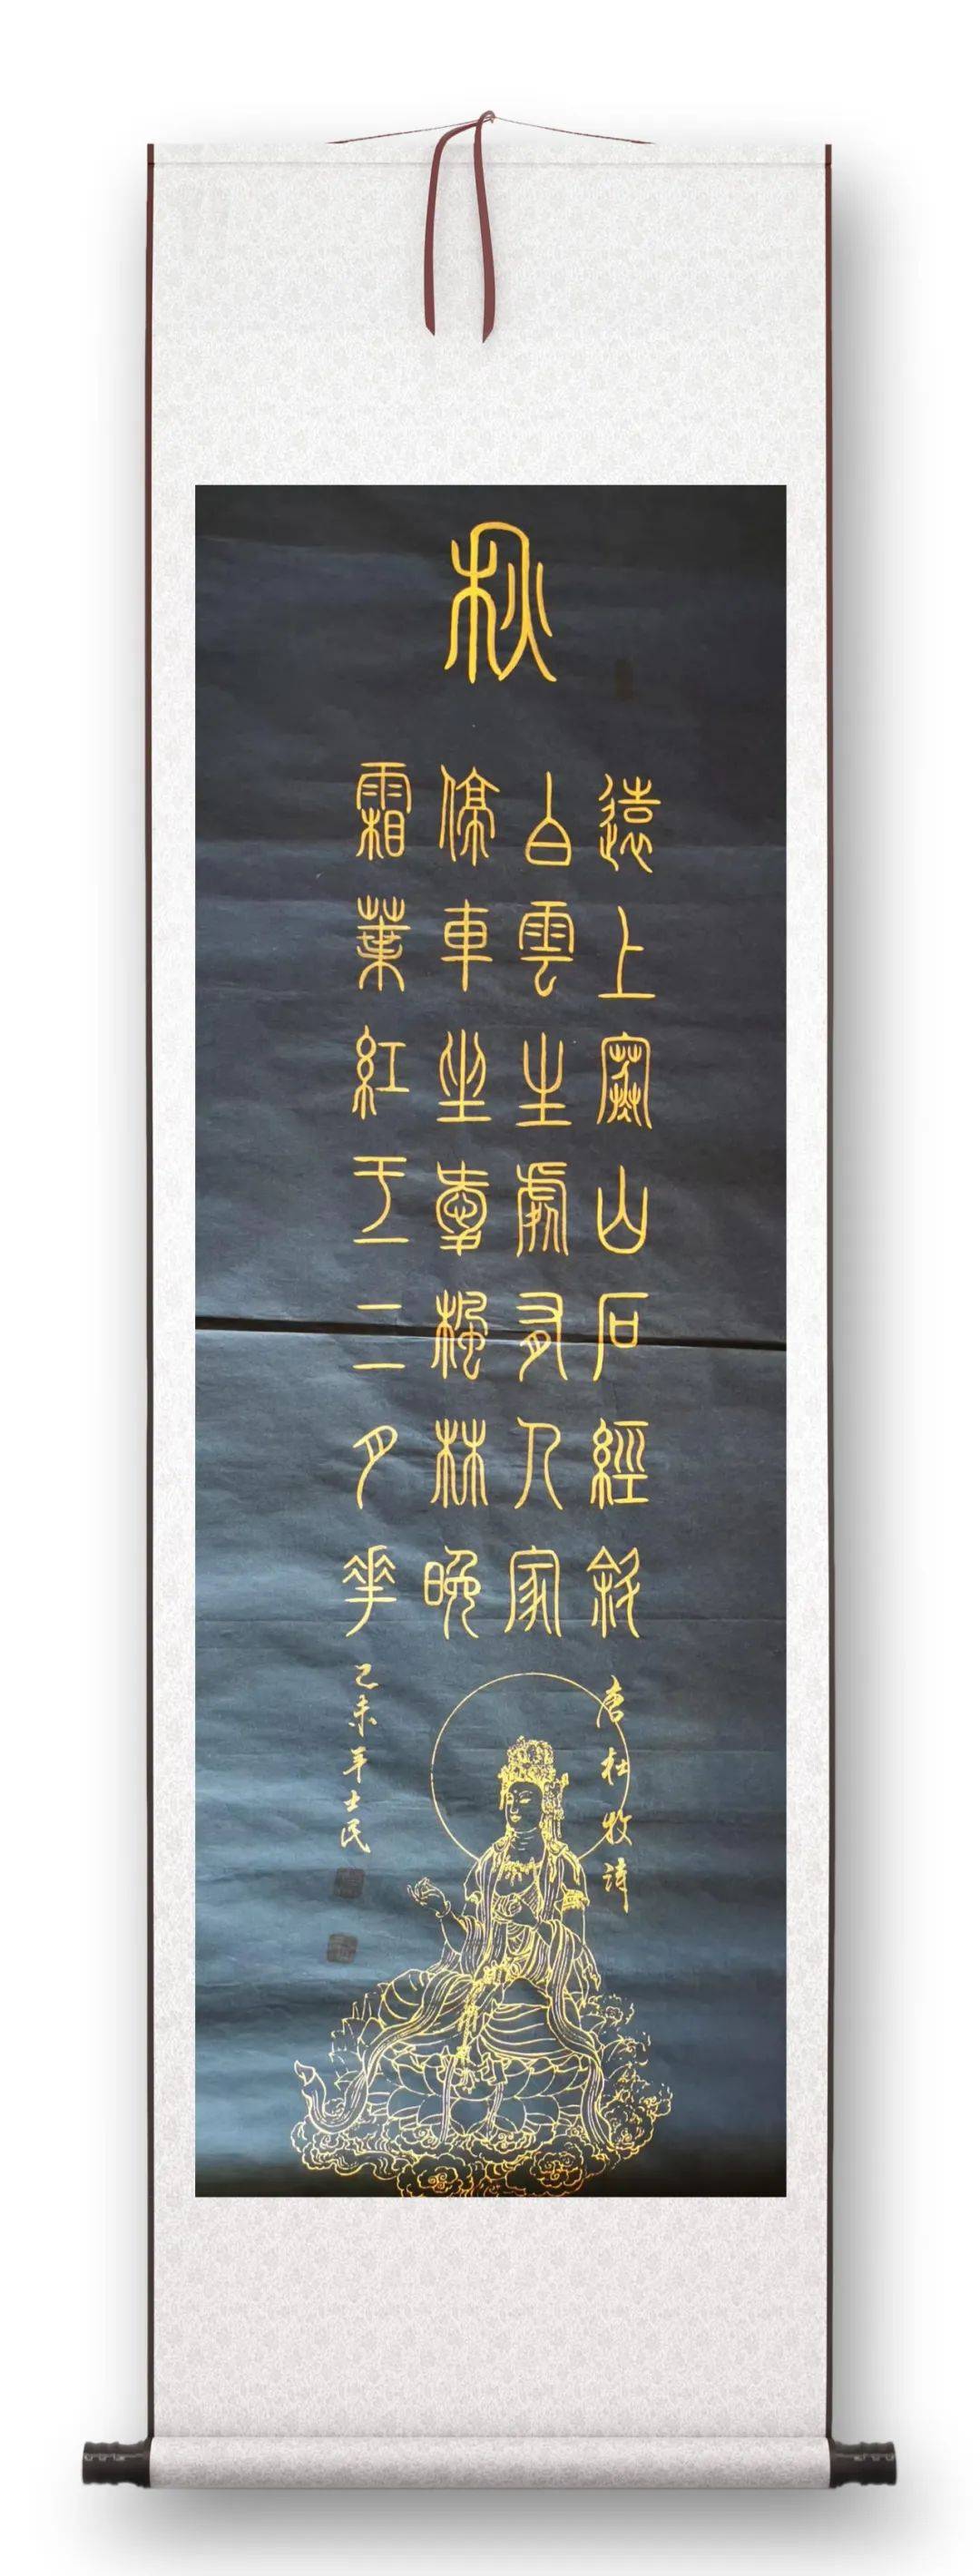 秋
遠上寒山石徑斜
白雲生處有人家
停車坐愛楓林晚
霜葉紅于二月華
唐杜牧詩
己未年士民